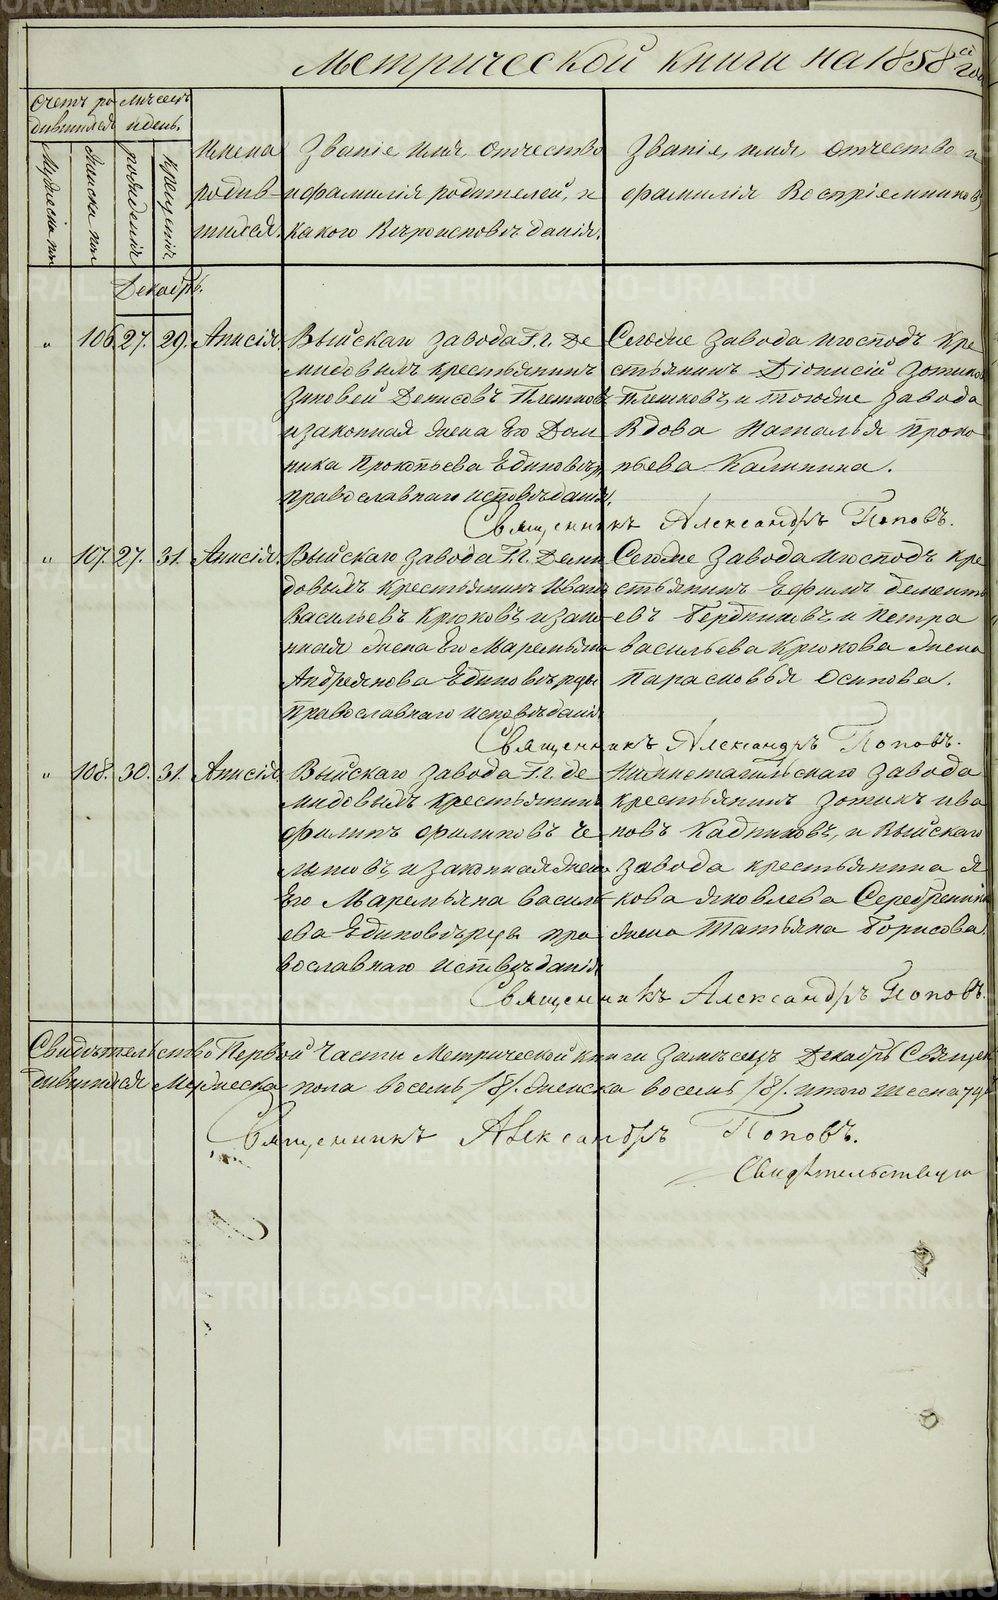 Метрической книги на 1858 й год
Счетъ ро
дившихся
Мужеска пол
Женска пол
Мѣсецъ
и день.
рожденія
крещенія
Имена
родив-
шихся.
Званіе имя, отчество
и фамилія родителей, и
какого вѣроисповѣданія.
Званіе, имя, отчество и
фамилія Воспріемниковъ
Декабрь.
" 106. 27. 29. Анисія.
Выйскаго завода Г.г. Де
мидовыхъ крестьянинъ
Зиновей Денисовъ Плешковъ
и законная жена Его Дом
ника Прокопьева Единовѣр.
православнаго исповѣданія.
Сегоже завода и господъ кре
стьянинъ Діонисій Зотиковъ
Плешковъ, и тогоже завода
Вдова Наталья Проко
пьева Калинина.
Священникъ Александръ Поповъ.
" 107. 27. 31. Анисія.
Выйскаго завода Г.г. Деми
довыхъ крестьянинъ Иванъ
Васильевъ Крюковъ, и зако
нная жена Его Маремьяна
Андреянова Единовѣрцы
Православнаго исповѣданія
Сегоже завода и господъ кре
стьянинъ Ефимъ Дементь
евъ Бердниковъ, и Петра
Васильева Крюкова жена
Парасковья Осипова.
Священникъ Александръ Поповъ.
" 108. 30. 31. Анисія
Выйскаго завода Г.г. Де
мидовыхъ крестьянинъ
Филипъ Филиповъ Че
и законная жена
Его Маремьяна Василь
ева Единовѣрцы пра
вославнаго исповѣданія
Нижнетагильскаго завода
крестьянинъ Зотикъ Ива
новъ Кадниковъ, и Выйскаго
завода крестьянина Я
кова Яковлева Серебрянник
жена Татьяна Борисова
Священникъ Александръ Поповъ.
Свидѣтельство Первой Части Метрической книги за мѣсецъ Декабрь Священ
дившихся Мужеска пола восемь /8/. Женска восемь /8/. итого шеснадц
Священникъ Александръ Поповъ.
Свидѣтельствую
METRIKI.GASO-URAL.RU